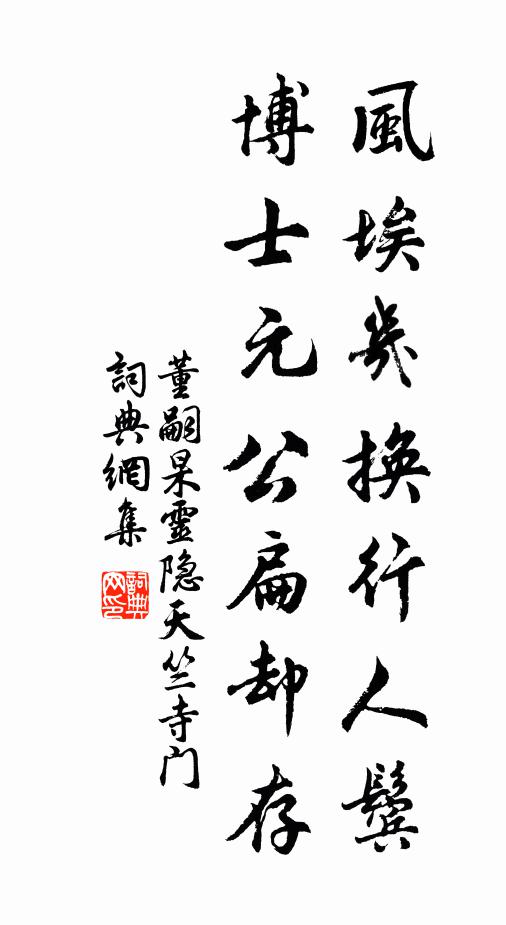 風埃幾換行人鬢
博士元公扁却存
董嗣杲靈隐天竺寺门
詞典網集
詞典网印